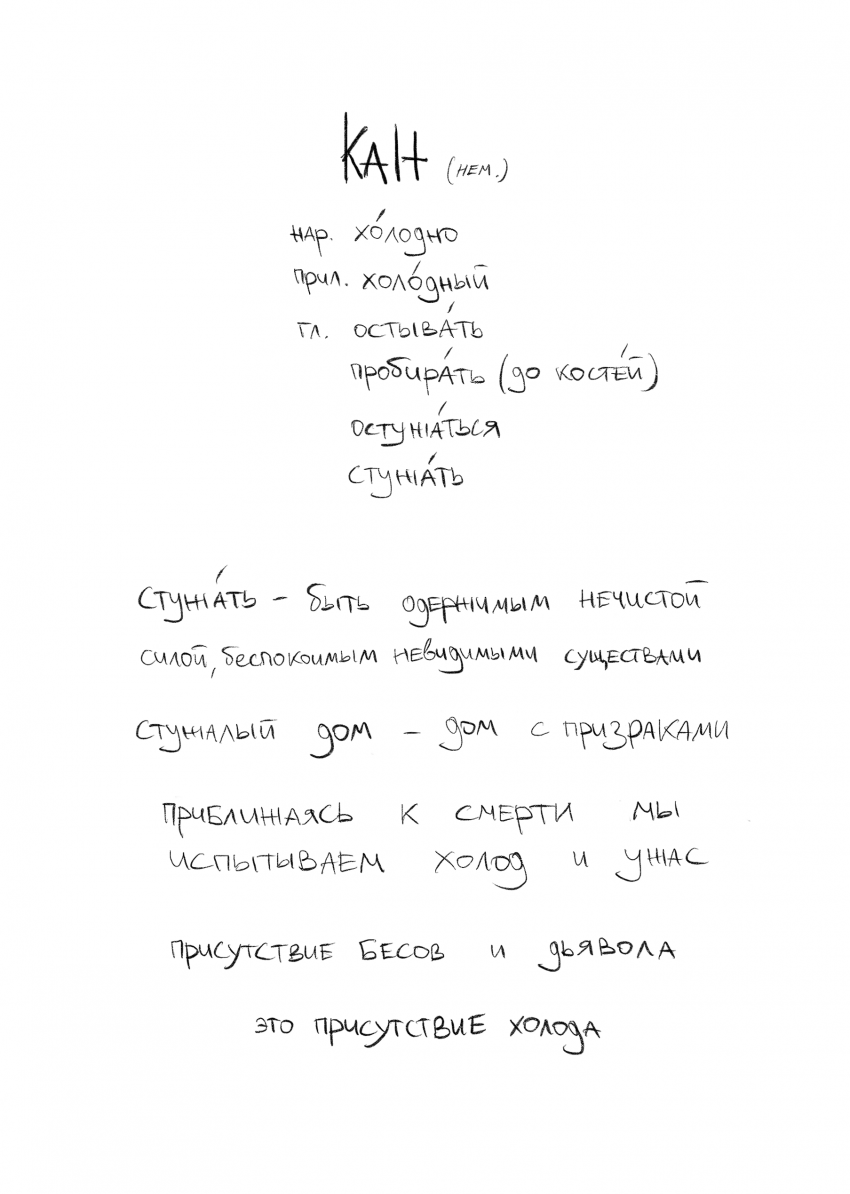 КАНТ (НЕМ.)
НАР. ХО́ЛОДНО
ПРИЛ. ХОЛО́ДНЫЙ
ГЛ. ОСТЫВА́ТЬ
ПРОБИРА́ТЬ (ДО КОСТЕ́Й)
ОСТУЖА́ТЬСЯ
СТУЖА́ТЬ
СТУЖА́ТЬ – БЫТЬ ОДЕРЖИМЫМ НЕЧИСТОЙ
СИЛОЙ, БЕСПОКОИМЫМ НЕВИДИМЫМИ СУЩЕСТВАМИ
СТУЖАЛЫЙ ДОМ – ДОМ С ПРИЗРАКАМИ
ПРИБЛИЖАЯСЬ К СМЕРТИ МЫ
ИСПЫТЫВАЕМ ХОЛОД И УЖАС
ПРИСУТСТВИЕ БЕСОВ И ДЬЯВОЛА
ЭТО ПРИСУТСТВИЕ ХОЛОДА